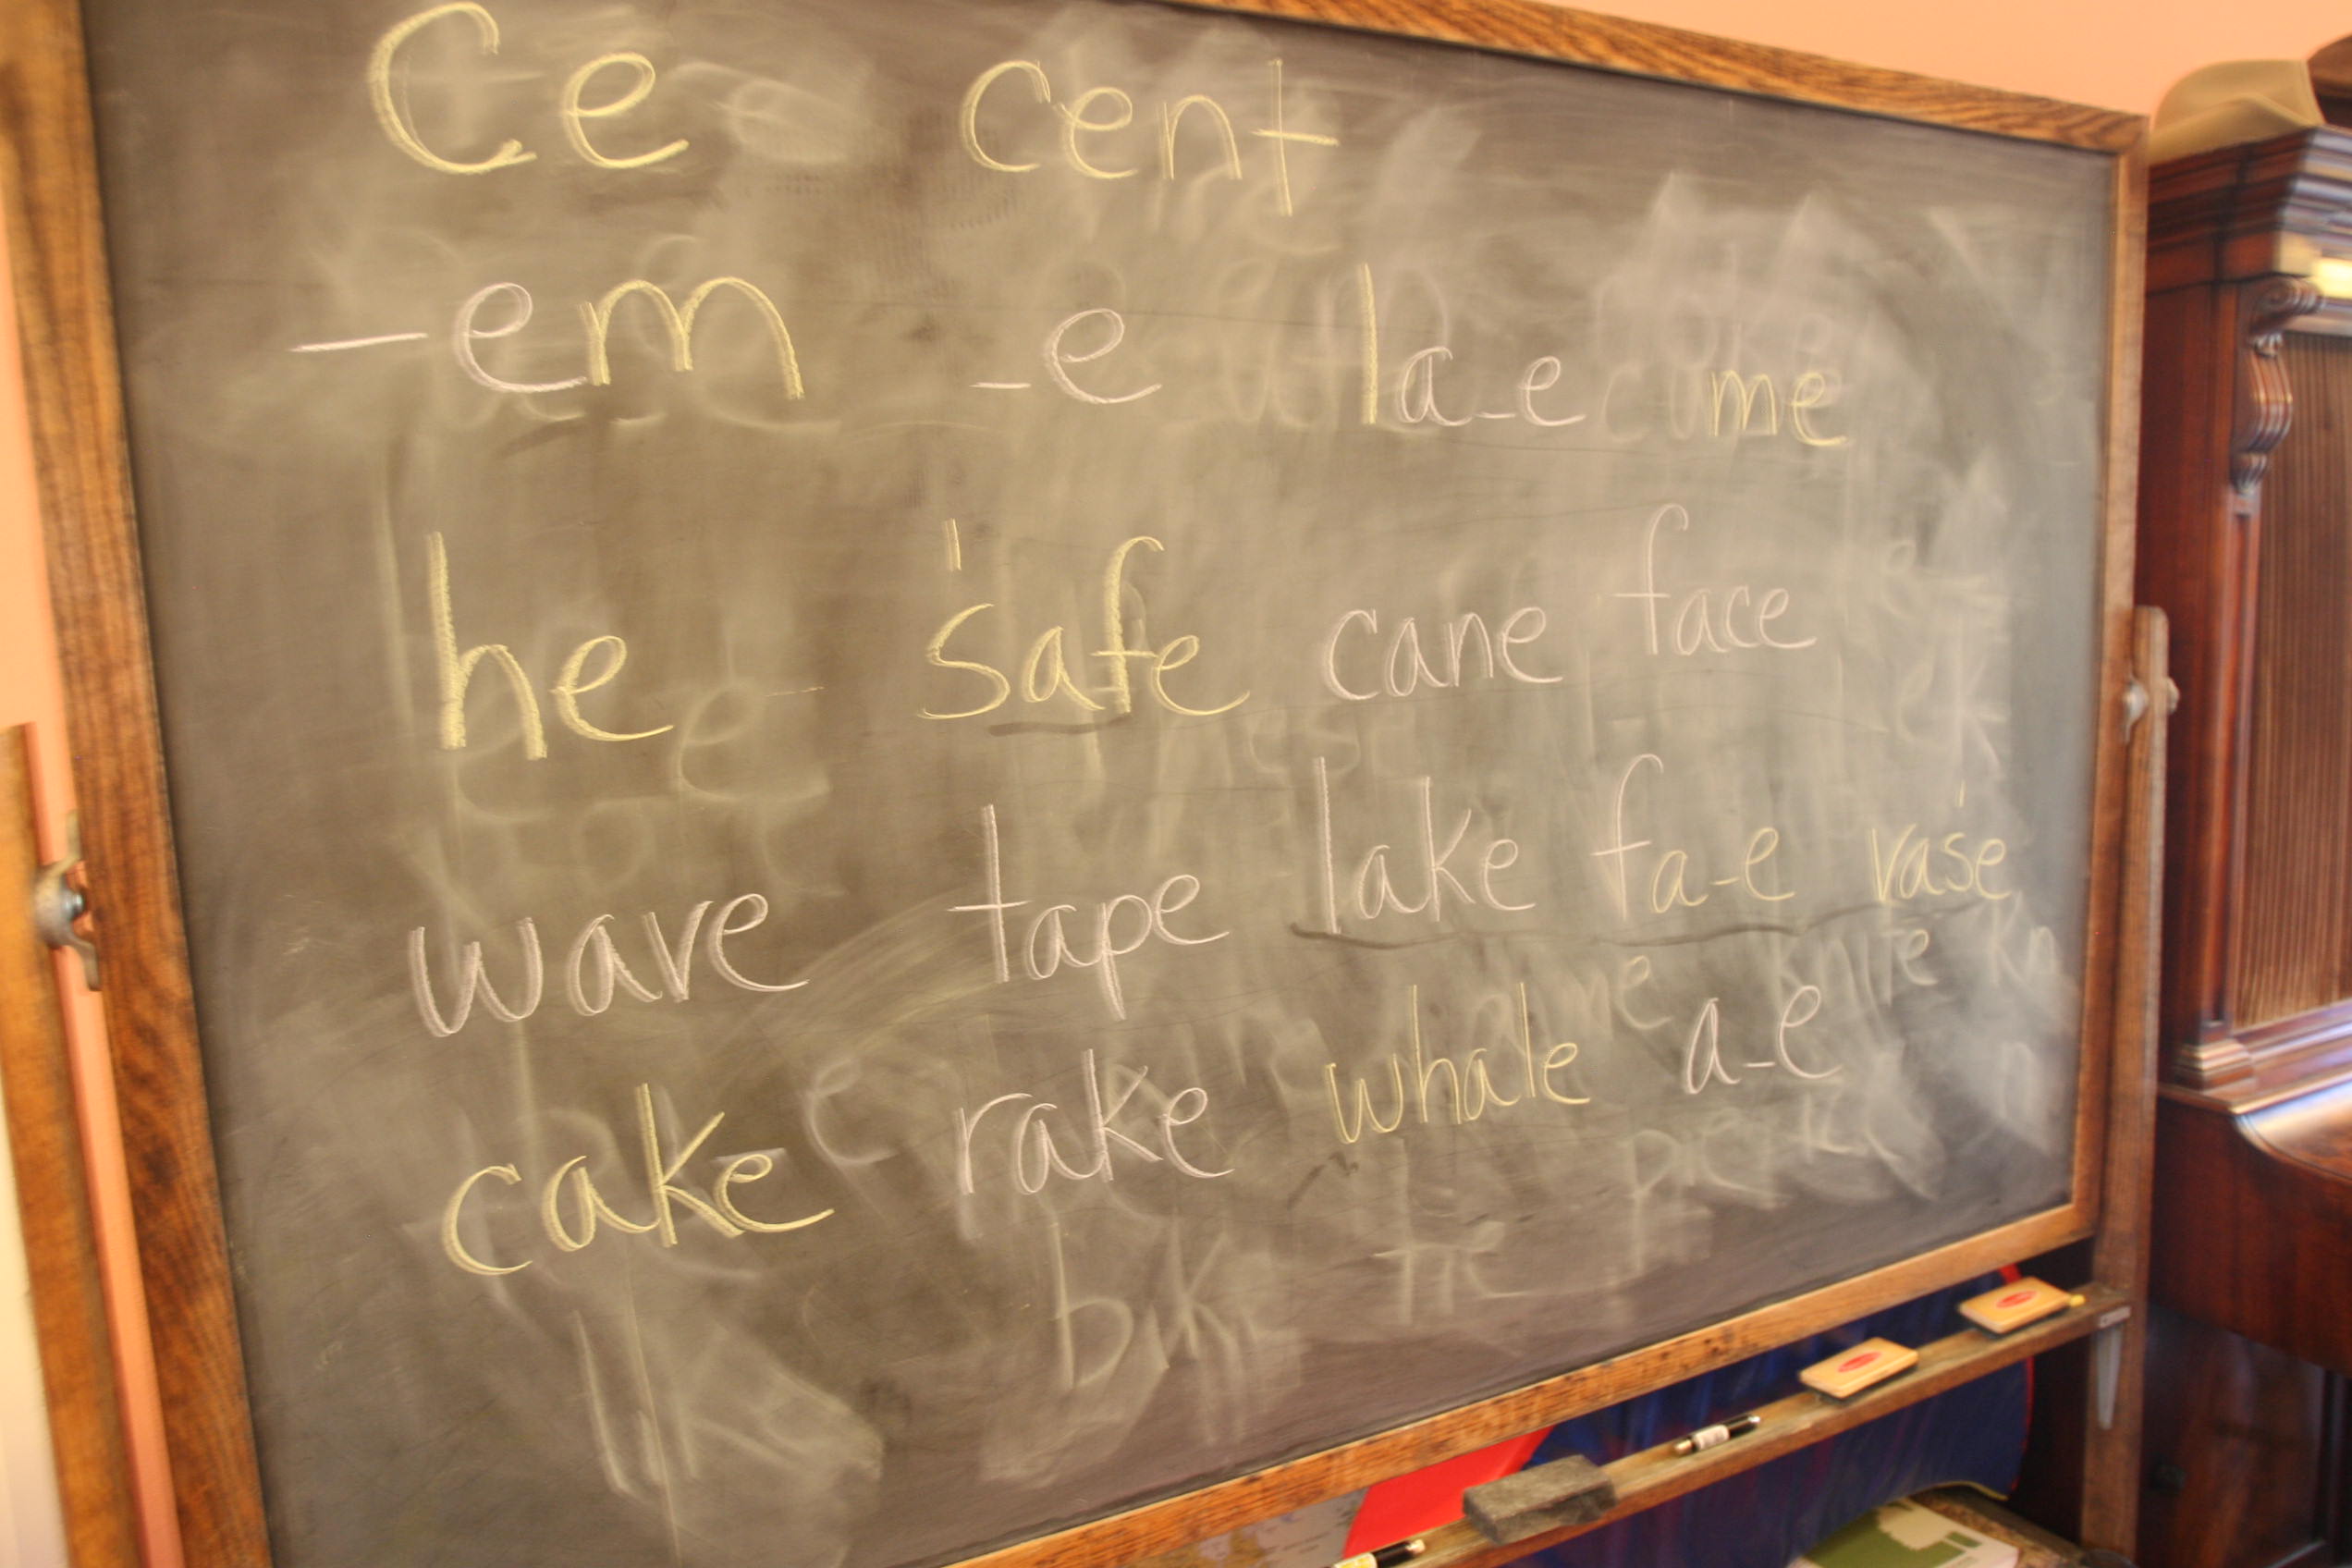 Ce cent
-em -e la-e me
he safe cane face
wave tape lake fa-e vase
cake rake whale a-e